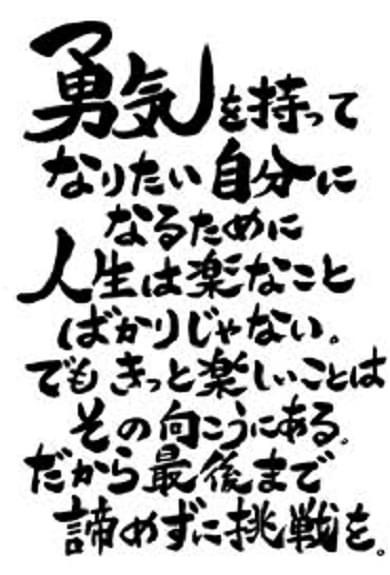 勇気を持って
なりたい自分に
なるために
人生は楽なこと
ばかりじゃない。
でもきっと楽しいことは
その向こうにある。
だから最後まで
諦めずに挑戦を。